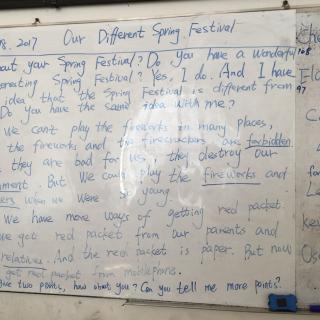 8, 2017 Our Different Spring Festival
out your Spring Festival? Do you have a wonderful
eresting Spring Festival? Yes, I do. And I have
idea that the Spring Festival is different from
Do you have the same idea with me?
we can't play the fireworks in many places,
the fireworks and the firecrackers are forbidden
they are bad for us, they destroy our
nment. But we could play the fireworks and
kers when we were so young.
we have more ways of getting red packet
we get red packet from our parents and
relatives. And the red packet is paper. But now
get red packet from mobilephone.
give two points, how about you? Can you tell me more points?
168
97